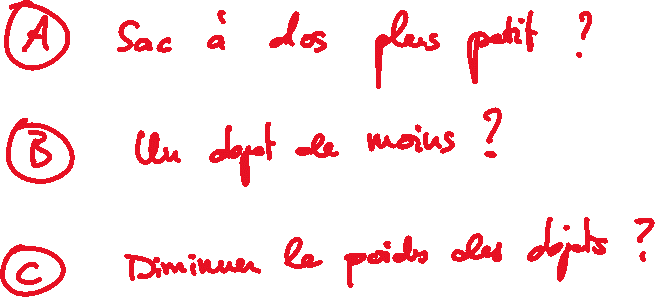 A Sac à dos plus petit ?
B Un objet de moins ?
C Diminuer le poids des objets ?